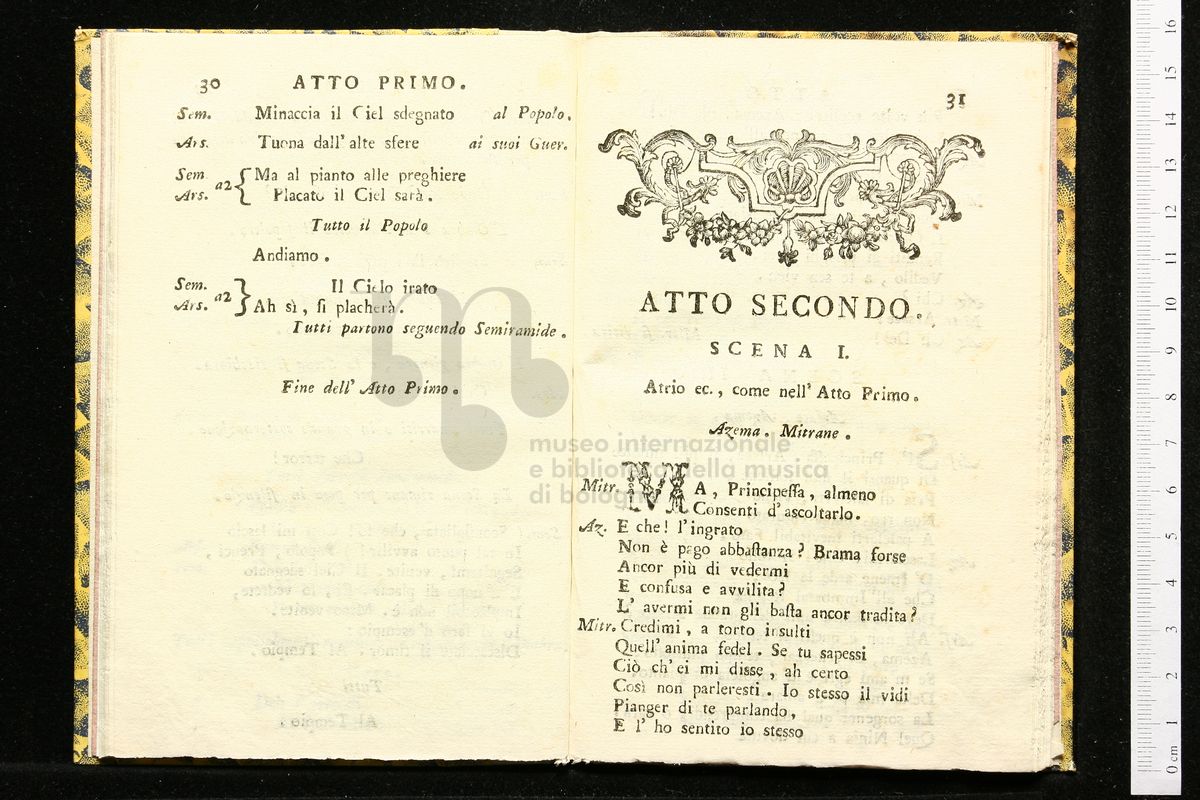 30 ATTO PRIMO.
Sem. Minaccia il Ciel sdegnato al Popolo.
Ars. Tuona dall' alte sfere ai suoi Guer.
Sem Ars. a2 { Ma al pianto alle preghiere
Placato il Ciel sarà.
Tutto il Popolo
Andiamo.
Sem. Ars. a2 } Il Cielo irato
Ah sì, si placherà.
Tutti partono seguendo Semiramide.
Fine dell' Atto Primo.
31
ATTO SECONDO.
SCENA I.
Atrio ec., come nell' Atto Primo.
Azema. Mitrane.
Mitr. MA, Principessa, almeno
Consenti d'ascoltarlo.
Az. E che! l'ingrato
Non è pago abbastanza? Brama forse
Ancor più di vedermi
E confusa e avvilita?
L' avermi non gli basta ancor tradita?
Mitr. Credimi, a torto insulti
Quell' anima fedel. Se tu sapessi
Ciò ch' ei mi disse, ah certo
Così non parleresti. Io stesso il vidi
Pianger di te parlando,
E l' ho sentito io stesso
museo internazionale
e biblioteca della musica
di bologna
0 cm 1 2 3 4 5 6 7 8 9 10 11 12 13 14 15 16